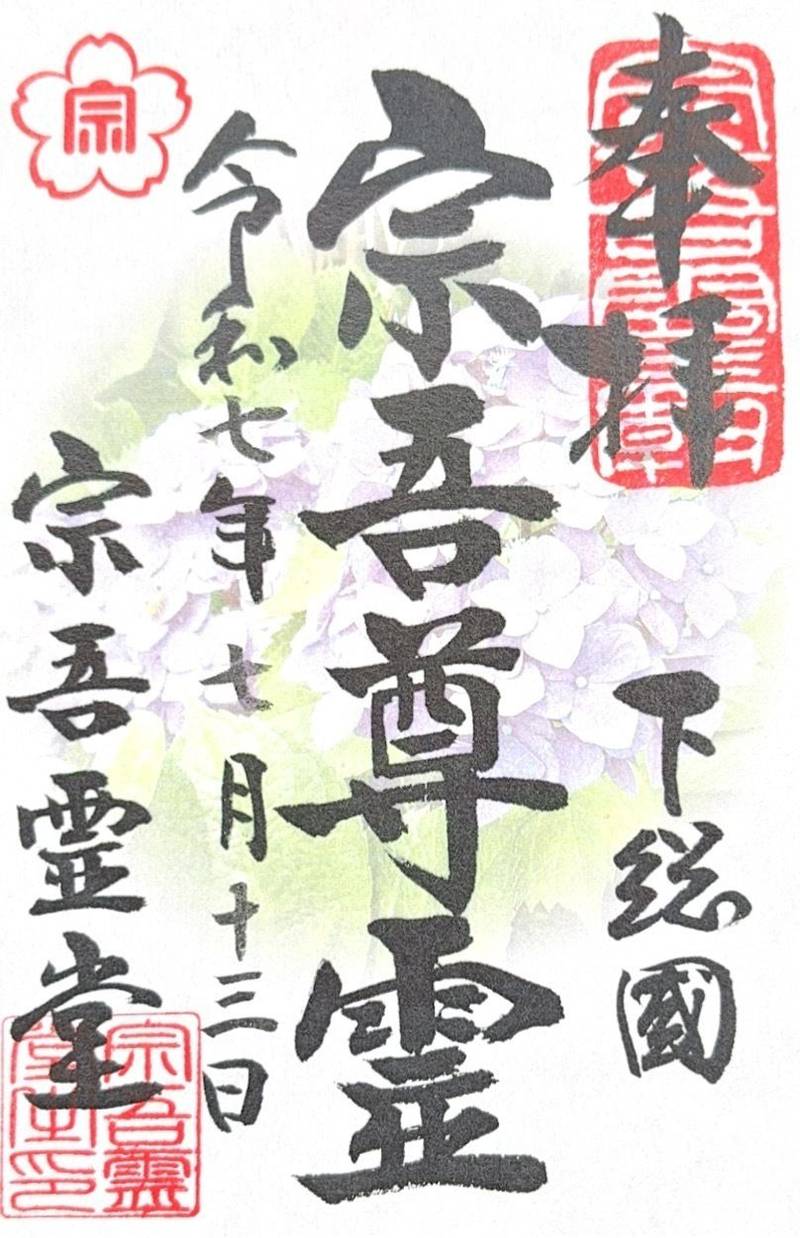 奉拝
下総國
宗吾尊霊
令和七年七月十三日
宗吾霊堂
宗
宗吾霊
堂主印